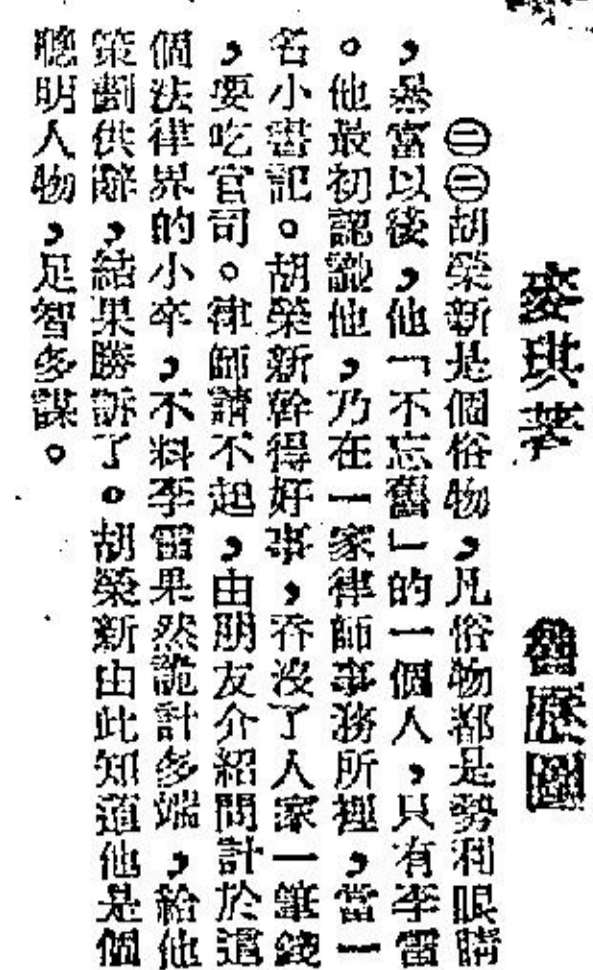 麥琪
㊂㊂胡榮新是個俗物,凡俗物都是勢利眼睛
,暴富以後,他「不忘舊」的一個人,只有李雷
。他最初認識他,乃在一家律師事務所裡,當一
名小書記。胡榮新幹得好事,吞沒了人家一筆錢
,要吃官司。律師請不起,由朋友介紹問計於這
個法律界的小卒,不料李雷果然詭計多端,給他
策劃供辭,結果勝訴了。胡榮新由此知道他是個
聰明人物,足智多謀。